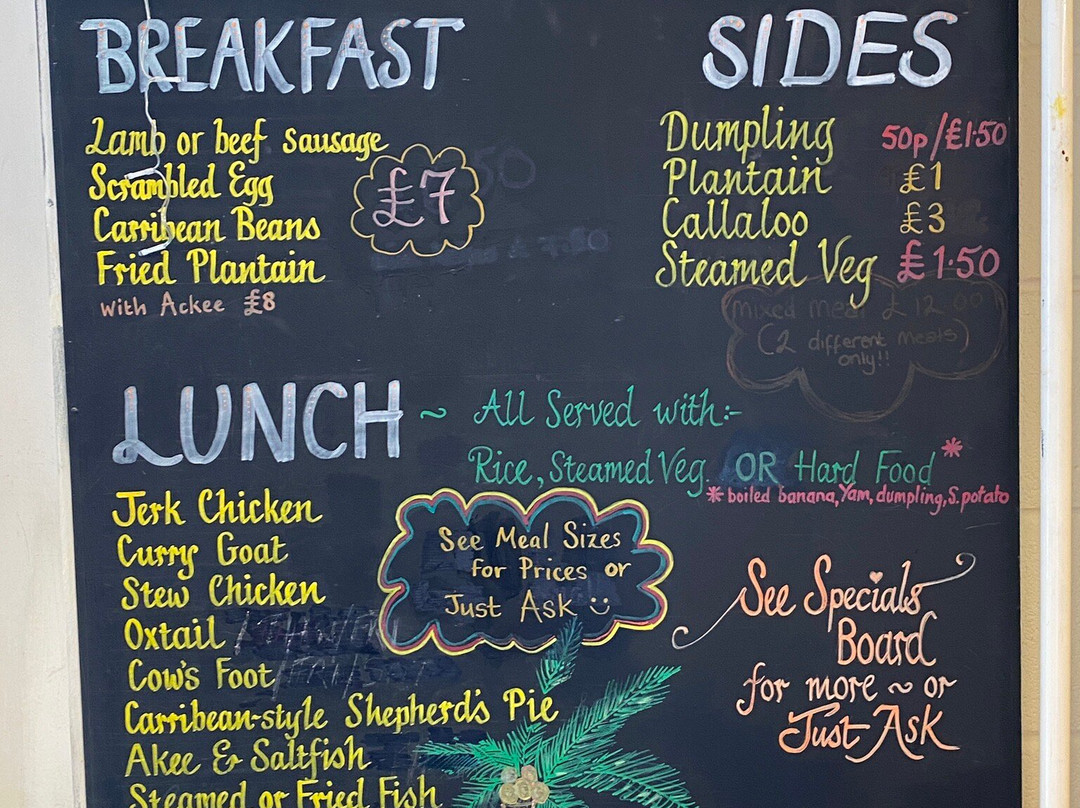 BREAKFAST
Lamb or beef sausage
Scrambled Egg
Carribean Beans
Fried Plantain
£7
with Ackee £8
SIDES
Dumpling 50p/£1·50
Plantain £1
Callaloo £3
Steamed Veg £1·50
mixed meal £12.00
(2 different meats)
only!!
LUNCH ~ All Served with:-
Rice, Steamed Veg. OR Hard Food*
*boiled banana, Yam, dumpling, S. potato
Jerk Chicken
Curry Goat
Stew Chicken
Oxtail
Cow's Foot
Carribean-style Shepherd's Pie
Akee & Saltfish
Steamed or Fried Fish
See Meal Sizes
for Prices or
Just Ask
See Specials
Board
for more ~ or
Just Ask